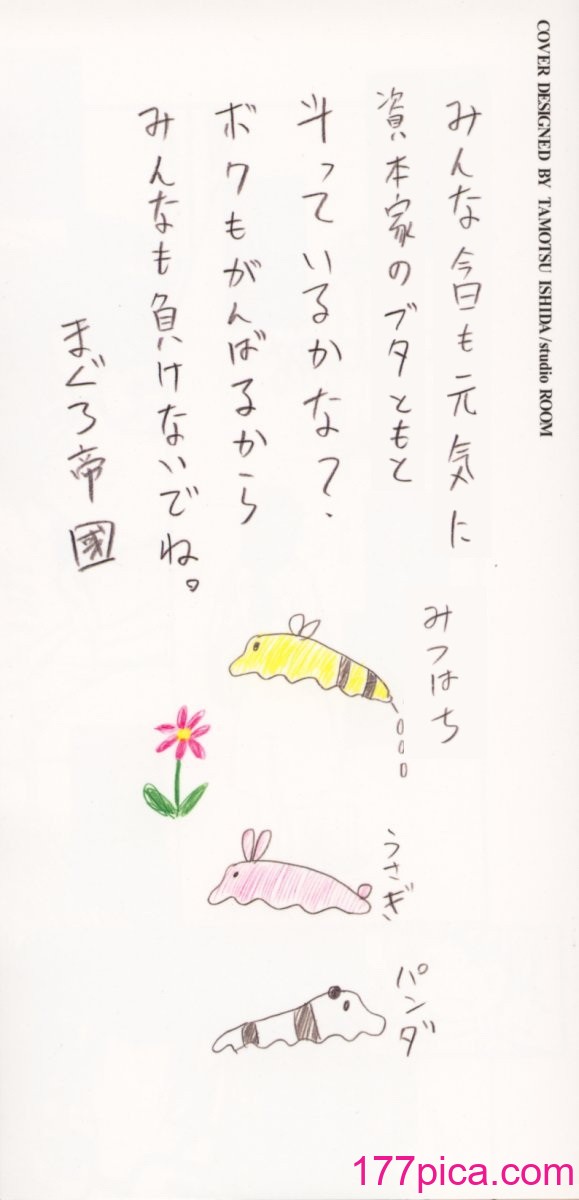 COVER DESIGNED BY TAMOTSU ISHIDA/studio ROOM
みんな今日も元気に
資本家のブタともと
斗っているかな？
ボクもがんばるから
みんなも負けないでね。
まぐろ帝國
みつはち
うさぎ
パンダ
177pica.com